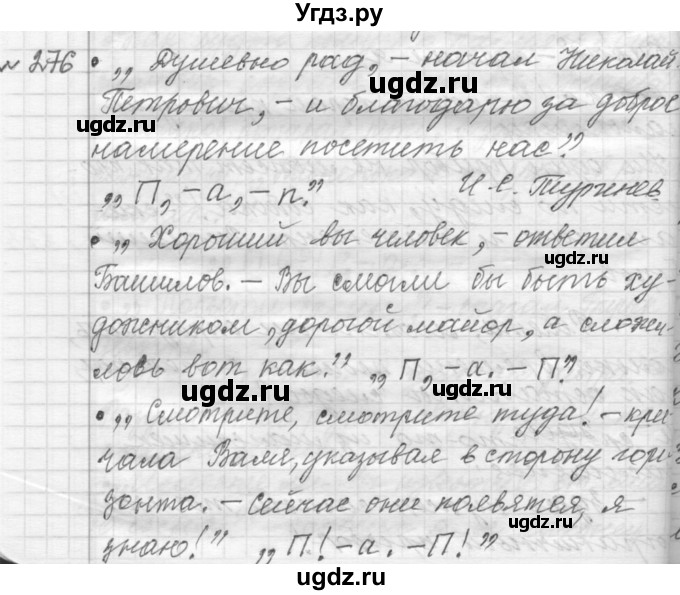 Угдз.ру
№ 276 • „Душевно рад, – начал Николай
Петрович, – и благодарю за доброе
намерение посетить нас”.
„П, – а, – п.” И. С. Тургенев
• „Хороший вы человек, – ответил
Башилов. – Вы смогли бы быть ху-
дожником, дорогой майор, а сложи-
лось вот как.” „П, – а. – П”.
• „Смотрите, смотрите туда! – кри-
чала Валя, указывая в сторону гори-
зонта. – Сейчас они появятся, я
знаю!” „П! – а. – П!”
ugdz.ru
ugdz.ru
ugdz.ru
ugdz.ru
ugdz.ru
ugdz.ru
ugdz.ru
ugdz.ru
ugdz.ru
ugdz.ru